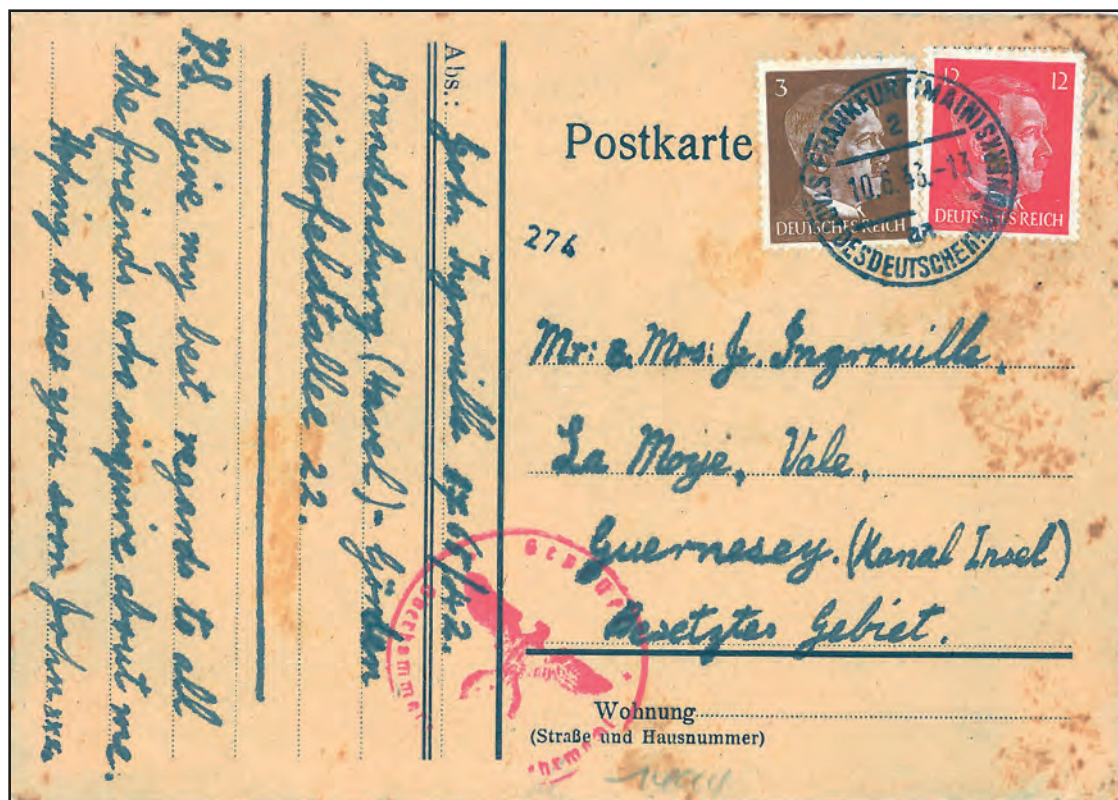 Postkarte
3
DEUTSCHES REICH
12
12
DEUTSCHES REICH
FRANKFURT (MAIN)
2
10.6.43.-13
DES DEUTSCHEN
276
Mr: & Mrs: J. Ingrouille,
La Moye, Vale,
Guernesey. (Kanal Insel)
Besetztes Gebiet.
Wohnung
(Straße und Hausnummer)
Abs.: John Ingrouille
Brandenburg (Havel)-Görden
Winterfeldtallee 22.
P.S. Give my best regards to all
the friends who inquire about me.
Hoping to see you soon John xxx
Geprüft
Oberkommando